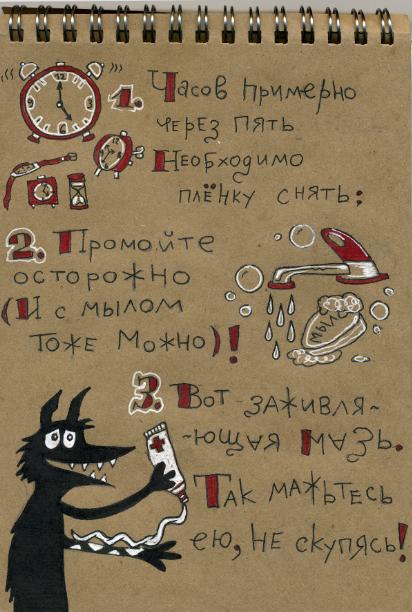 1. Часов примерно
через пять
Необходимо
плёнку снять:
2. Промойте
осторожно
(И с мылом
тоже можно)!
мыло
3. Вот заживля-
-ющая мазь.
Так мажьтесь
ею, не скупясь!